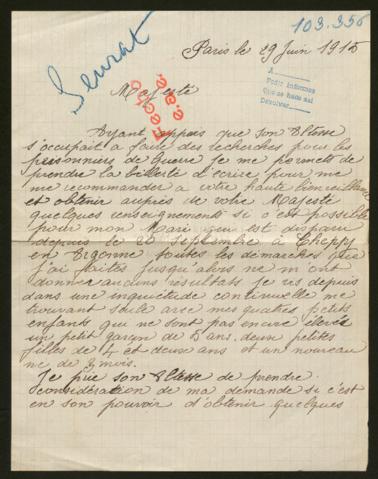 103.356
Paris le 29 Juin 1915
A
Pedir informes
Que se haga así
Devolver
Majesté
Ayant appris que son Altesse
s'occupait a faire des recherches pour les
prisonniers de Guerre Je me permets de
prendre la liberté d'écrire pour me
me recommander a votre haute bienveillance
et obtenir auprès de votre Majesté
quelques renseignements si c'est possible
pour mon Mari qui est disparu
depuis le 20 Septembre à Cheppy
en Argonne toutes les démarches que
j'ai faites jusqu'alors ne m'ont
donner aucuns résultats Je vis depuis
dans une inquiétude continuelle me
trouvant seule avec mes quatres petits
enfants qui ne sont pas encore élevés
un petit garçon de 5 ans. deux petites
filles de 4 et deux ans et un nouveau
né de 3 mois.
Je prie son Altesse de prendre
considération de ma demande si c'est
en son pouvoir d'obtenir quelques